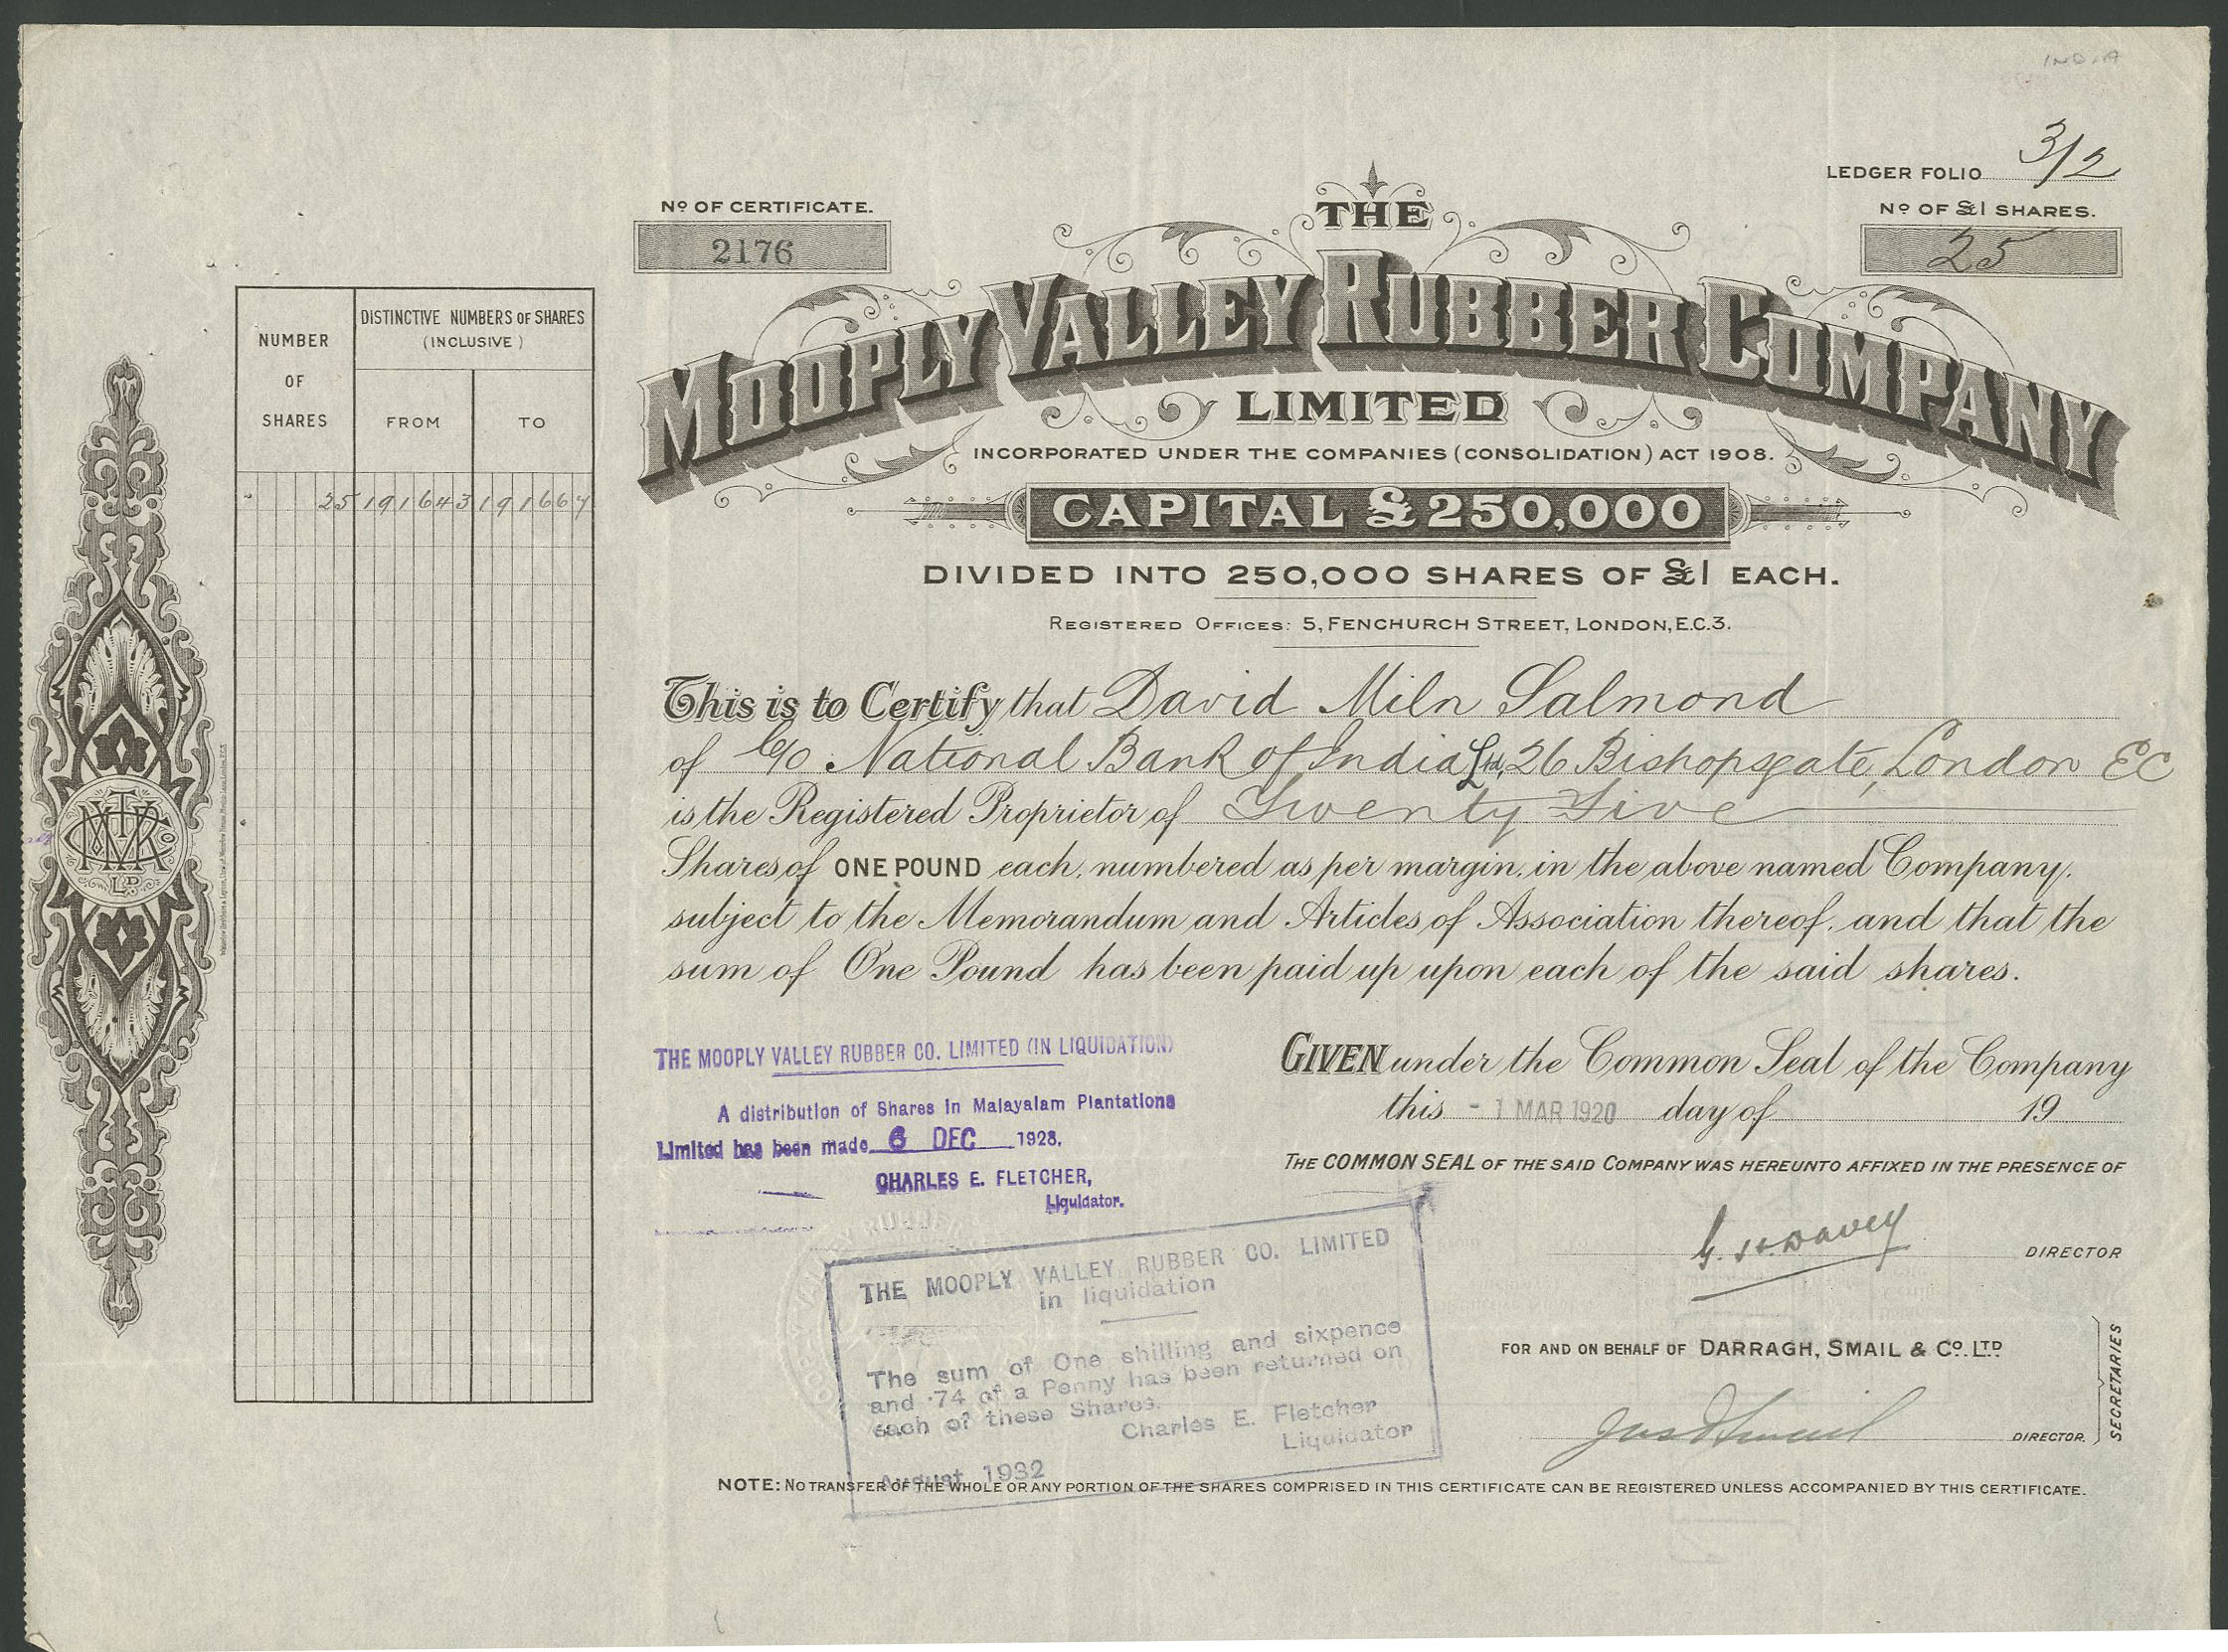 INDIA
LEDGER FOLIO 312
Nº OF CERTIFICATE.
2176
Nº OF £1 SHARES.
25
THE
MOOPLY VALLEY RUBBER COMPANY
LIMITED
INCORPORATED UNDER THE COMPANIES (CONSOLIDATION) ACT 1908.
CAPITAL £250,000
DIVIDED INTO 250,000 SHARES OF £1 EACH.
REGISTERED OFFICES: 5, FENCHURCH STREET, LONDON, E.C.3.
NUMBER OF SHARES
DISTINCTIVE NUMBERS OF SHARES
(INCLUSIVE)
FROM TO
25 191643 191667
This is to Certify that David Miln Salmond
of c/o National Bank of India Ltd, 26 Bishopsgate, London EC
is the Registered Proprietor of Twenty Five
Shares of ONE POUND each, numbered as per margin, in the above named Company,
subject to the Memorandum and Articles of Association thereof, and that the
sum of One Pound has been paid up upon each of the said shares.
GIVEN under the Common Seal of the Company
this - 1 MAR 1920 day of 19
THE COMMON SEAL OF THE SAID COMPANY WAS HEREUNTO AFFIXED IN THE PRESENCE OF
G. H. Davey DIRECTOR
FOR AND ON BEHALF OF DARRAGH, SMAIL & CO. LTD
DIRECTOR.
SECRETARIES
THE MOOPLY VALLEY RUBBER CO. LIMITED (IN LIQUIDATION)
A distribution of Shares in Malayalam Plantations
Limited has been made 6 DEC 1928.
CHARLES E. FLETCHER,
Liquidator.
THE MOOPLY VALLEY RUBBER CO. LIMITED
in liquidation
The sum of One shilling and sixpence
and .74 of a Penny has been returned on
each of these Shares.
Charles E. Fletcher
Liquidator
August 1932
NOTE: NO TRANSFER OF THE WHOLE OR ANY PORTION OF THE SHARES COMPRISED IN THIS CERTIFICATE CAN BE REGISTERED UNLESS ACCOMPANIED BY THIS CERTIFICATE.